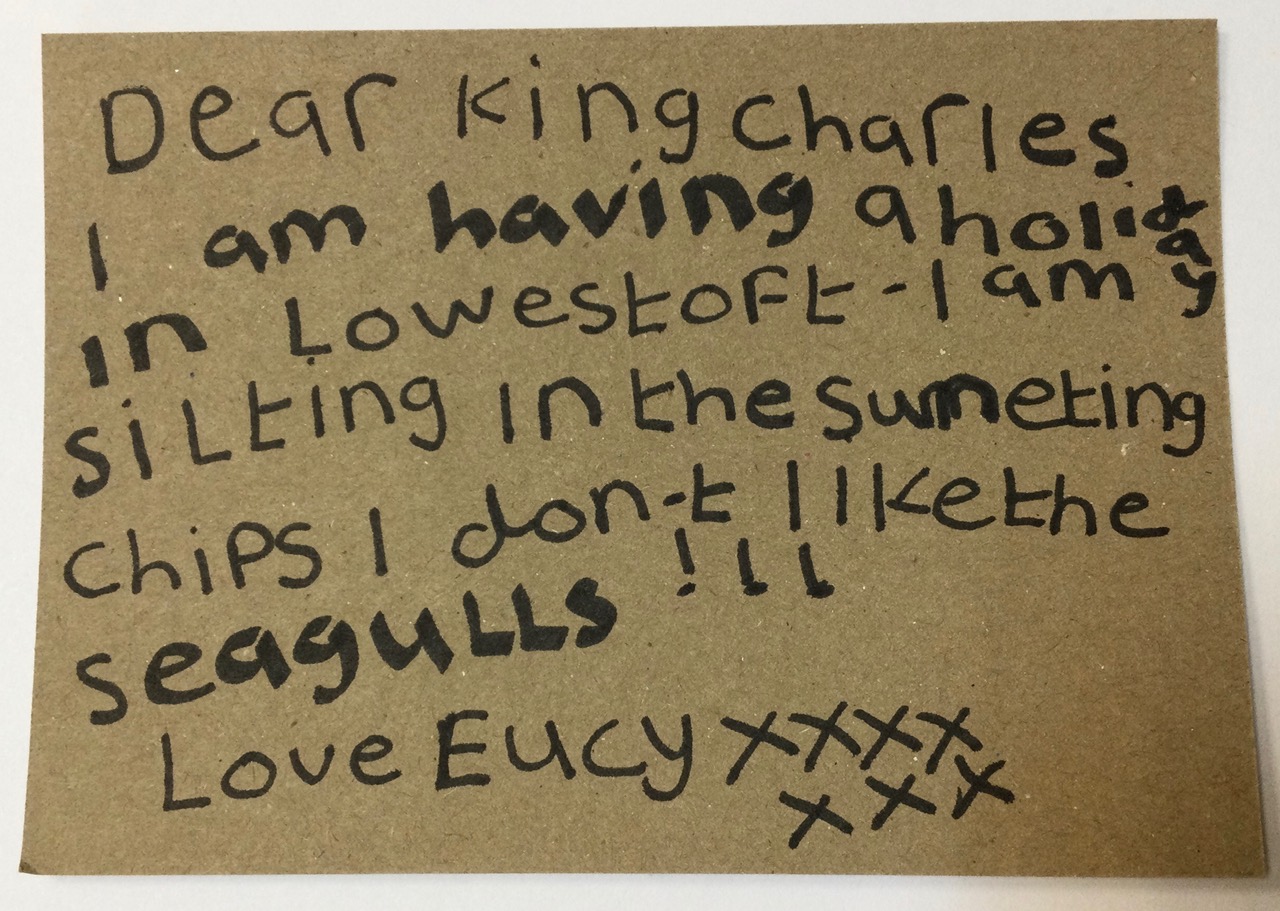 Dear King Charles
I am having a holiday
in Lowestoft - I am
silting in the sumeting
chips I don-t llke the
seagulls !!!
Love Eucy xxxx
xxx